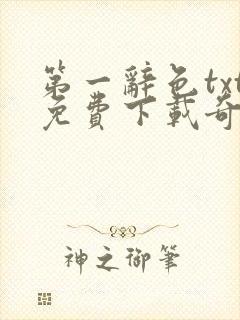 第一辭色txt
免費下載奇
神之御筆